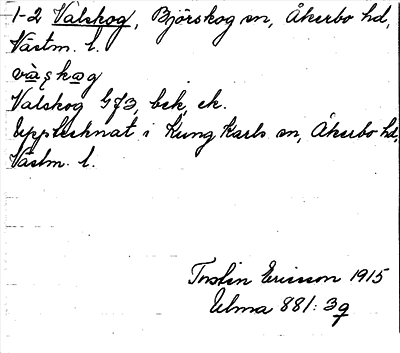 1-2 Valskog, Björskog sn, Åkerbo hd,
Västm. l.
Valskog GJ3, bek, ek.
Upptecknat i Kung Karls sn, Åkerbo hd,
Västm. l.
Torsten Ericsson 1915
Ulma 881:3